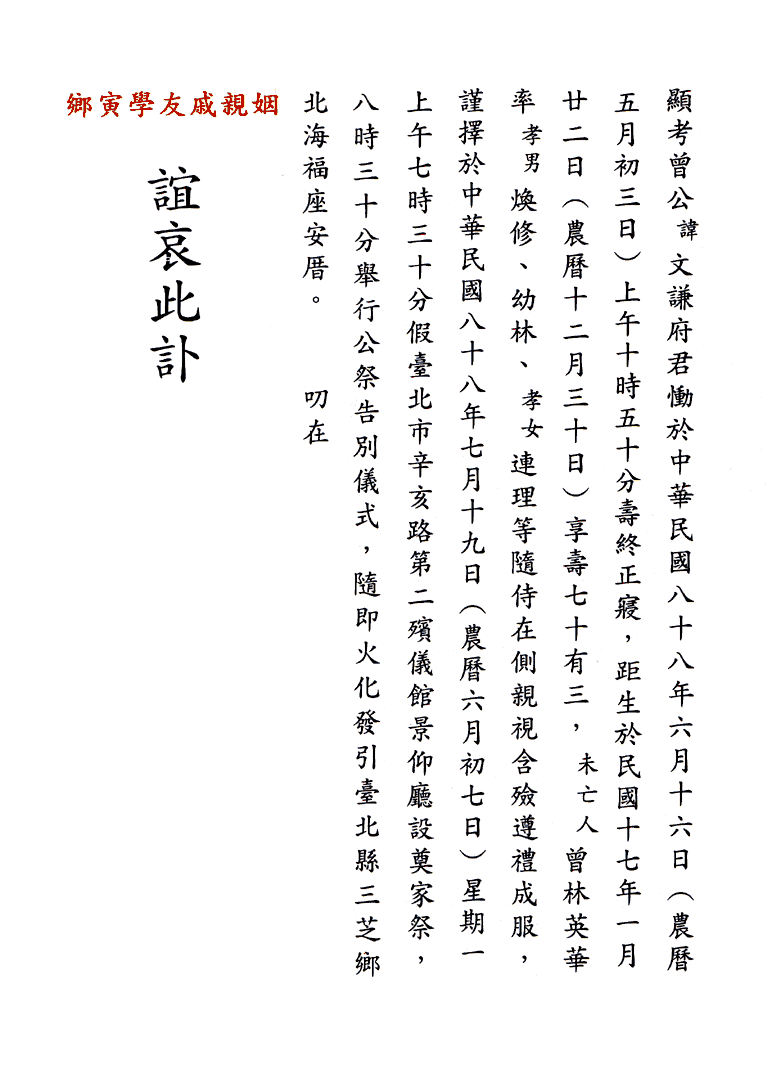 顯考曾公諱文謙府君慟於中華民國八十八年六月十六日（農曆
五月初三日）上午十時五十分壽終正寢，距生於民國十七年一月
廿二日（農曆十二月三十日）享壽七十有三，未亡人曾林英華
率孝男煥修、幼林、孝女連理等隨侍在側親視含殮遵禮成服，
謹擇於中華民國八十八年七月十九日（農曆六月初七日）星期一
上午七時三十分假臺北市辛亥路第二殯儀館景仰廳設奠家祭，
八時三十分舉行公祭告別儀式，隨即火化發引臺北縣三芝鄉
北海福座安厝。 叨在
姻親戚友學寅鄉
誼哀此訃